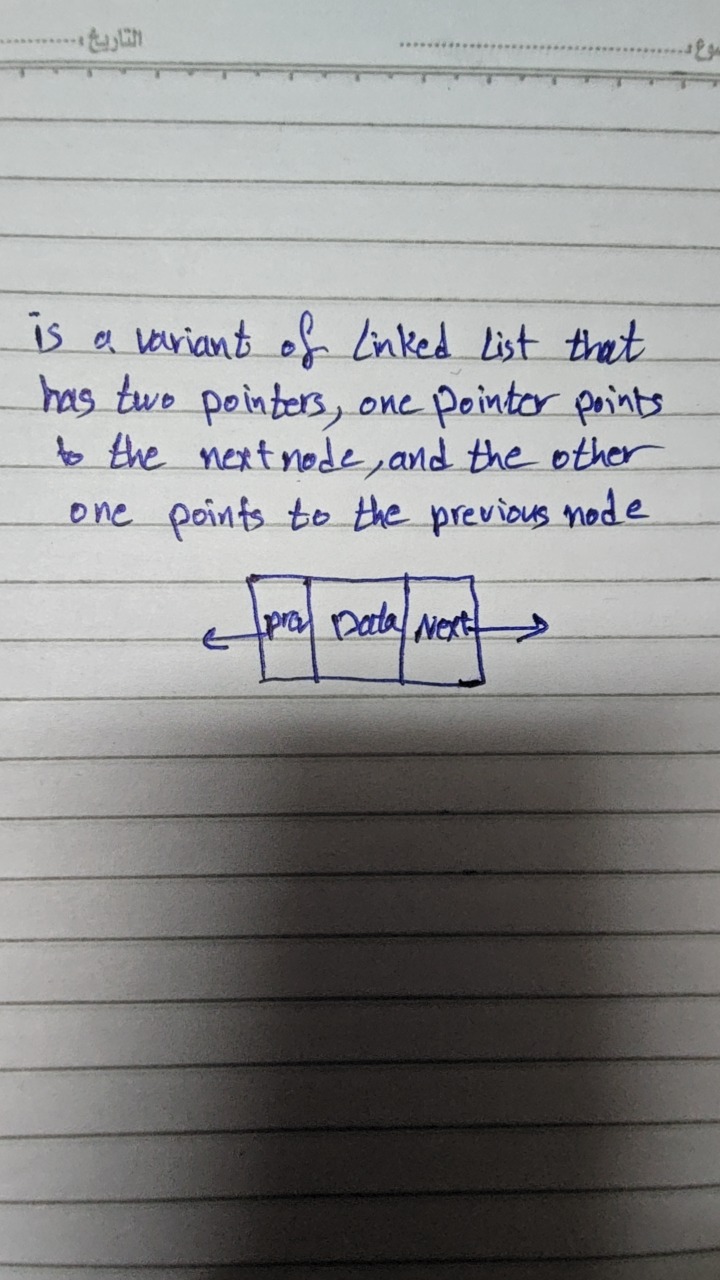 التاريخ:
is a variant of Linked List that
has two pointers, one pointer points
to the next node, and the other
one points to the previous node
Data Next